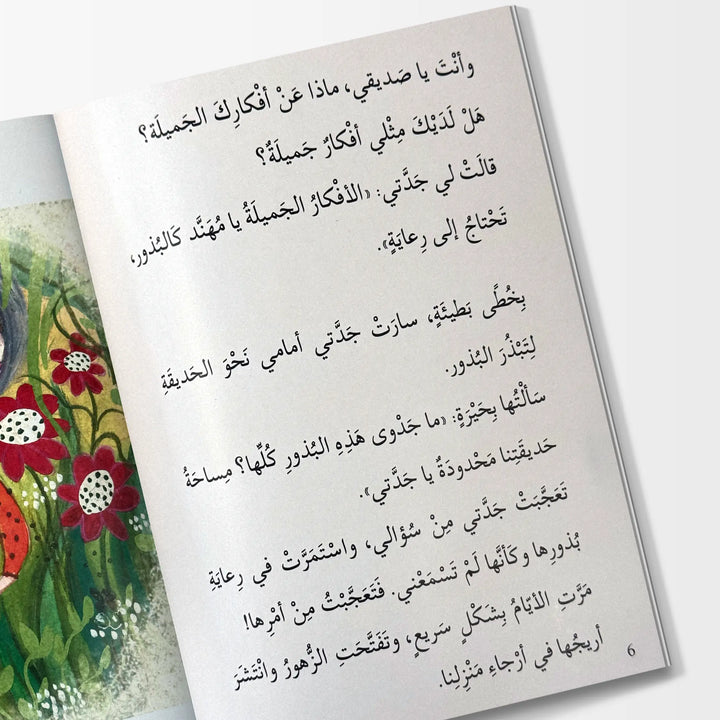 وأنْتَ يا صَديقي، ماذا عَنْ أفْكارِكَ الجَميلَة؟
هَلْ لَدَيْكَ مِثْلي أفْكارٌ جَميلَةٌ؟
قالَتْ لي جَدَّتي: «الأفْكارُ الجَميلَةُ يا مُهَنَّد كَالبُذور،
تَحْتاجُ إلى رِعايَةٍ».
بِخُطًى بَطيئَةٍ، سارَتْ جَدَّتي أمامي نَحْوَ الحَديقَةِ
لِتَبْذُرَ البُذور.
سَألْتُها بِحَيْرَةٍ: «ما جَدْوى هَذِهِ البُذورِ كُلِّها؟ مِساحَةُ
حَديقَتِنا مَحْدودَةٌ يا جَدَّتي».
تَعَجَّبَتْ جَدَّتي مِنْ سُؤالي، واسْتَمَرَّتْ في رِعايَةِ
بُذورِها وكَأنَّها لَمْ تَسْمَعْني. فَتَعَجَّبْتُ مِنْ أمْرِها!
مَرَّتِ الأيّامُ بِشَكْلٍ سَريعٍ، وتَفَتَّحَتِ الزُّهورُ وانْتَشَرَ
أريجُها في أرْجاءِ مَنْزِلِنا.
6